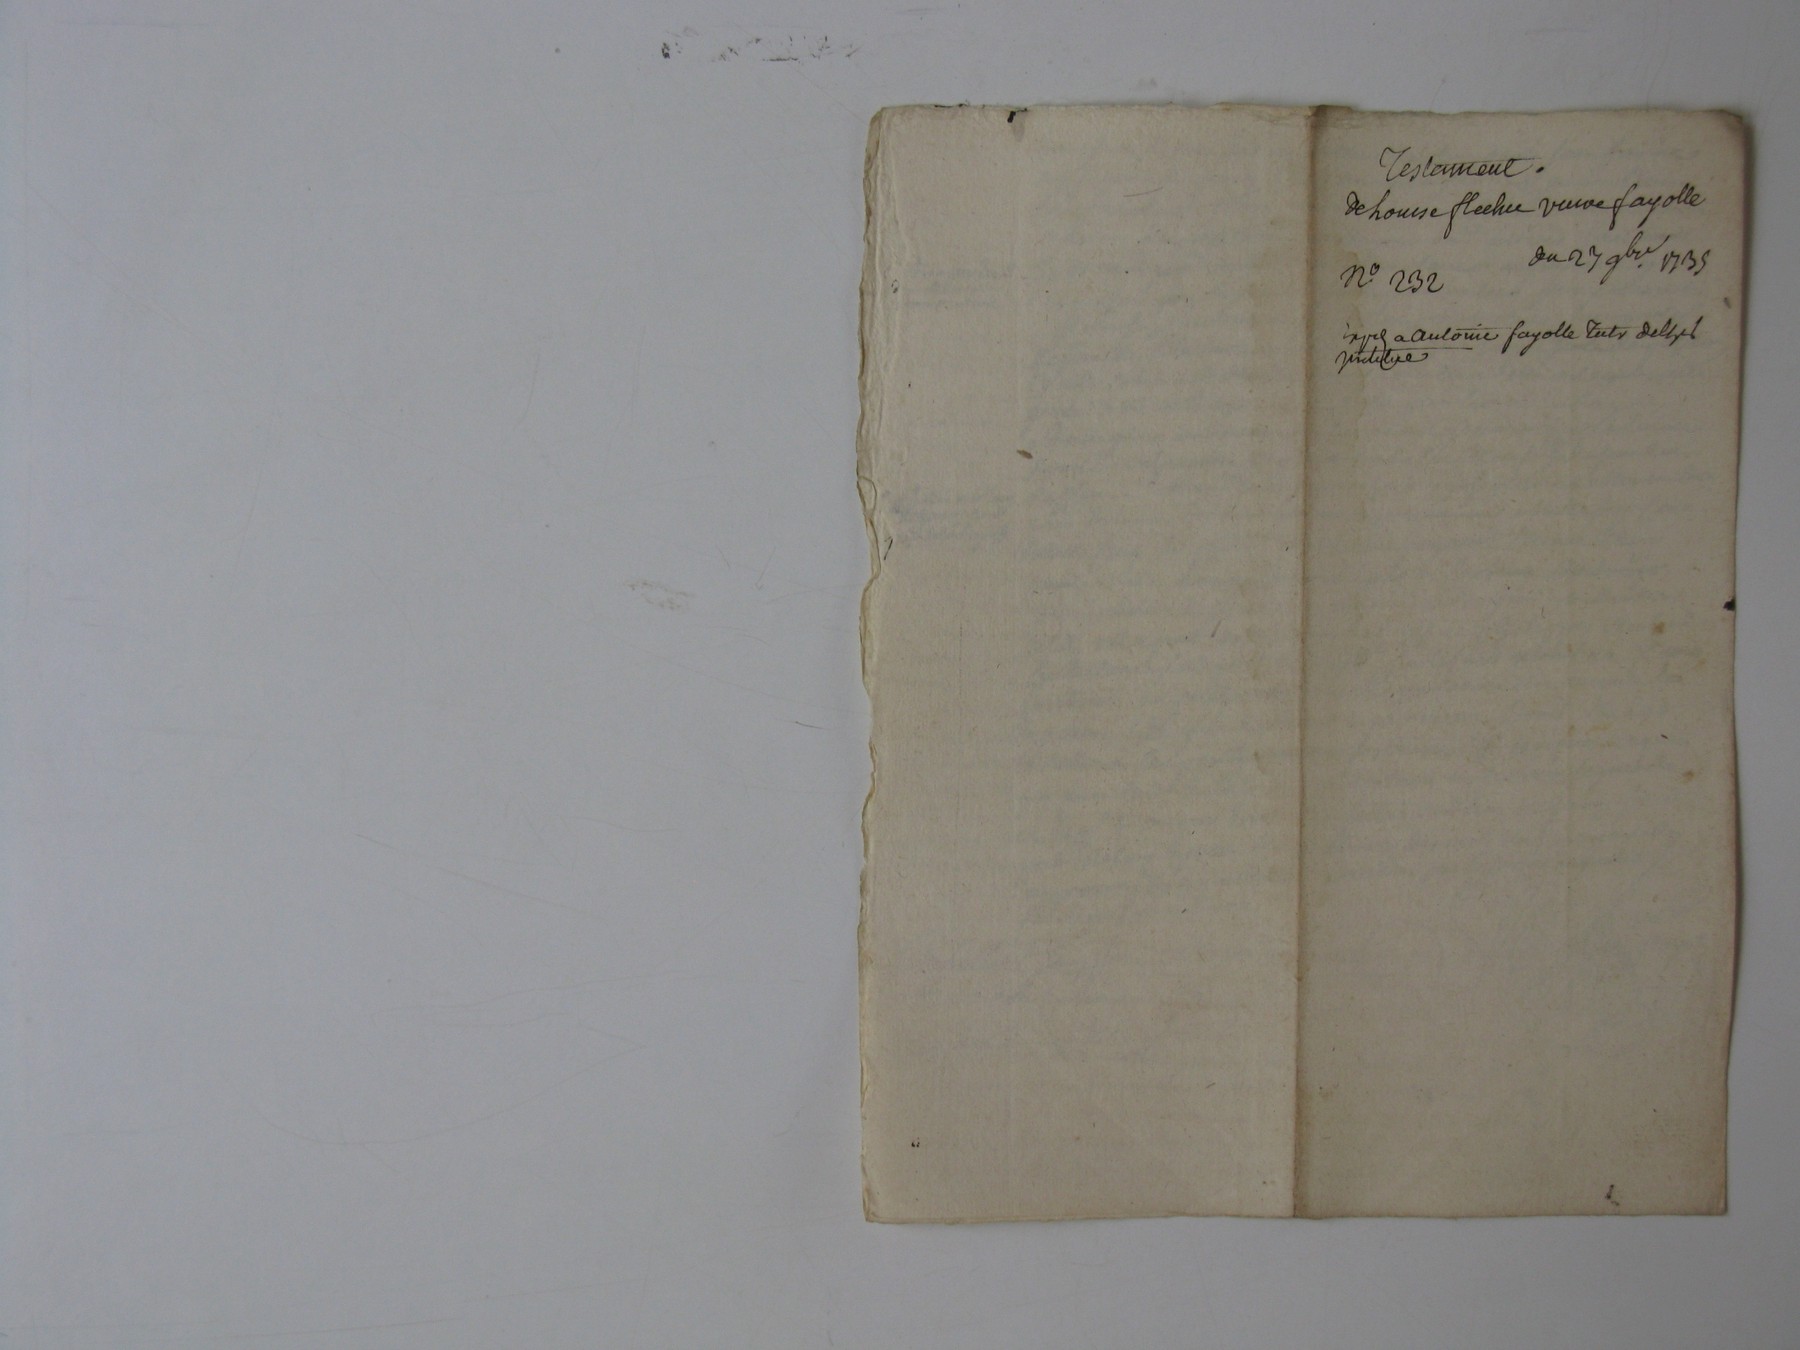 Testament.
De Louise flechu veuve fayolle
du 27 9bre 1735
N° 232
a antoine fayolle